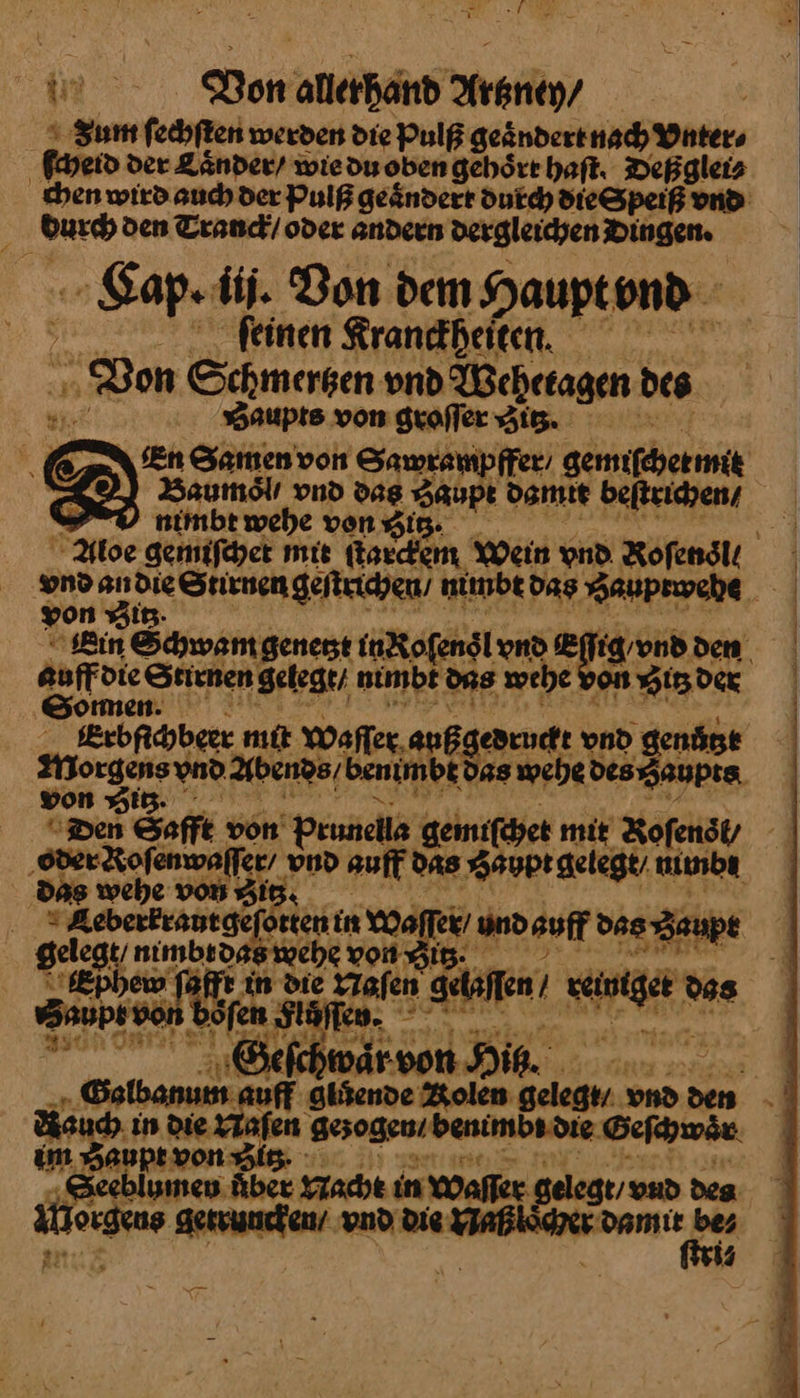 Von allerhand Artzney/
Zum sechsten werden die Pulß geåndert nach Vnter⸗
scheid der Lånder/ wie du oben gehört hast. Deßglei⸗
chen wird auch der Pulß geåndert durch die Speiß vnd
durch den Tranck/ oder andern dergleichen Dingen.
Cap. iij. Von dem Haupt vnd
seinen Kranckheiten.
Von Schmertzen vnd Wehetagen des
Haupts von grosser Hitz.
DEn Samen von Sawrampffer/ gemischet mit
Baumöl/ vnd das Haupt damit bestrichen/
nimbt wehe von Hitz.
Aloe gemischet mit starckem Wein vnd Rosenöl/
vnd an die Stirnen gestrichen/ nimbt das Hauptwehe
von Hitz.
Ein Schwam genetzt in Rosenöl vnd Essig/ vnd den
auff die Stirnen gelegt/ nimbt das wehe von Hitz der
Sonnen.
Erbsichbeer mit Wasser außgedruckt vnd genützt
Morgens vnd Abends/ benimbt das wehe des Haupts
von Hitz.
Den Safft von Prunella gemischet mit Rosenöl/
oder Rosenwasser/ vnd auff das Haupt gelegt/ nimbt
das wehe von Hitz.
Leberkraut gesotten in Wasser/ und auff das Haupt
gelegt/ nimbt das wehe von Hitz.
Ephew safft in die Nasen gelassen/ reiniget das
Haupt von bösen Flüssen.
Geschwår von Hitz.
Galbanum auff glüende Kolen gelegt/ vnd den
Rauch in die Nasen gezogen/ benimbt die Geschwår
im Haupt von Hitz.
Seeblumen über Nacht in Wasser gelegt/ vnd des
Morgens getruncken/ vnd die Naßlöcher damit be⸗
stri⸗